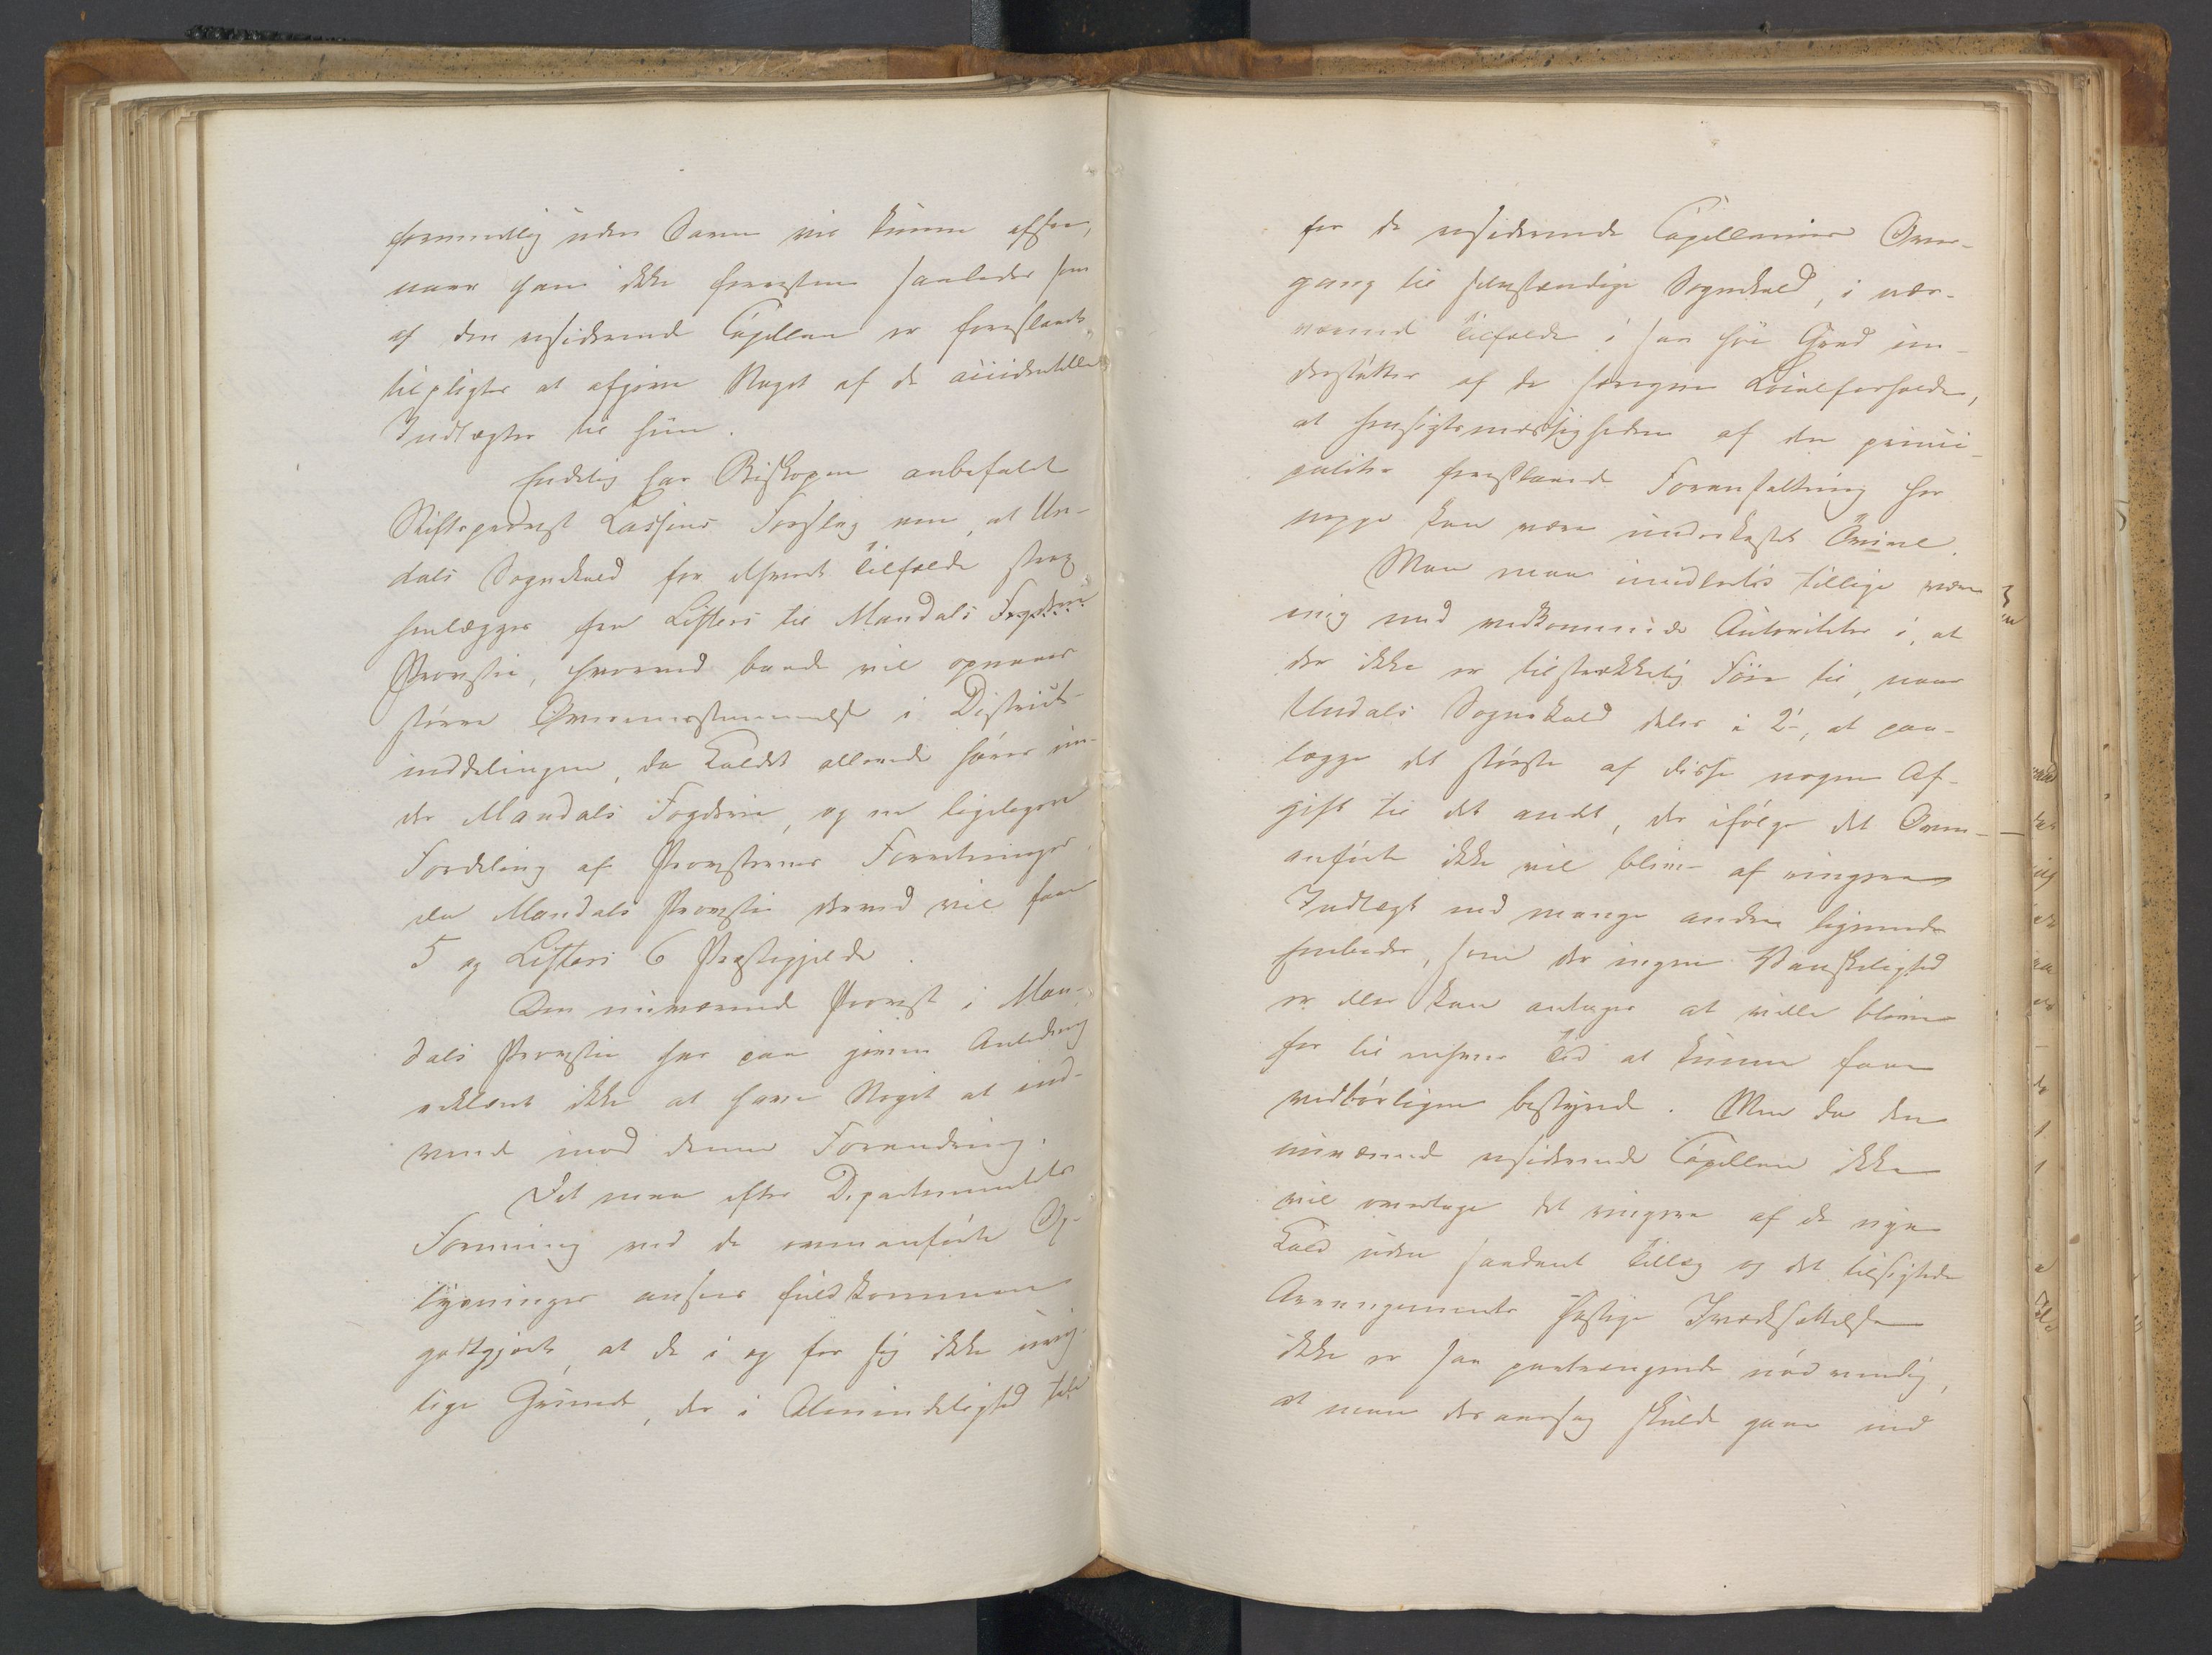 formentlig uden Savn vil kunne afsees,
naar han ikke forresten saaledes som
af den residerende Capellan er foreslaaet,
tilpligtes at afgive Noget af de accidentelle
Indtægter til ham.
Endelig har Biskopen anbefalet
Stiftsprovst Lassens Forslag om, at Un-
dals Sognekald for ethvert Tilfælde strax
henlægges fra Listers til Mandals Fogderie
Provstie, hvorved baade vil opnaaes
større Overeensstemmelse i District-
inddelingen, da Kaldet allerede hører un-
der Mandals Fogderie, og en ligeligere
Fordeling af Provsternes Forretninger,
da Mandals Provstie derved vil faae
5 og Listers 6 Præstegjelde.
Den nuværende Provst i Man-
dals Provstie har paa given Anledning
erklæret ikke at have Noget at ind-
vende imod denne Forandring.
Det maa efter Departementets
Formening ved de ovenanførte Op-
lysninger ansees fuldkommen
godtgjort, at de i og for sig ikke uvig-
tige Grunde, der i Almindelighed tale
for de residerende Capellaniers Over-
gang til selvstændige Sognekald, i nær-
værende Tilfælde i saa høi Grad un-
derstøttes af de særegne Localforholde,
at Hensigtsmæssigheden af den princi-
paliter foreslaaede Foranstaltning her
neppe kan være underkastet Tvivl.
Man maa imidlertid tillige være
enig med vedkommende Autoriteter i, at
der ikke er tilstrækkelig Føie til, naar
Undals Sognekald deles i 2, at paa-
lægge det største af disse nogen Af-
gift til det andet, der ifølge det Oven-
anførte ikke vil blive af ringere
Indtægt end mange andre lignende
Embeder, som der ingen Vanskelighed
er eller kan antages at ville blive
for til enhver Tid at kunne faae
vedbørligen bestyrede. Men da den
nuværende residerende Capellan ikke
vil overtage det ringere af de nye
Kald uden saadant Tillæg og det tilsigtede
Arrangements hastige Iværksættelse
ikke er saa paatrængende nødvendig,
at man deraarsag skulde gaae ind